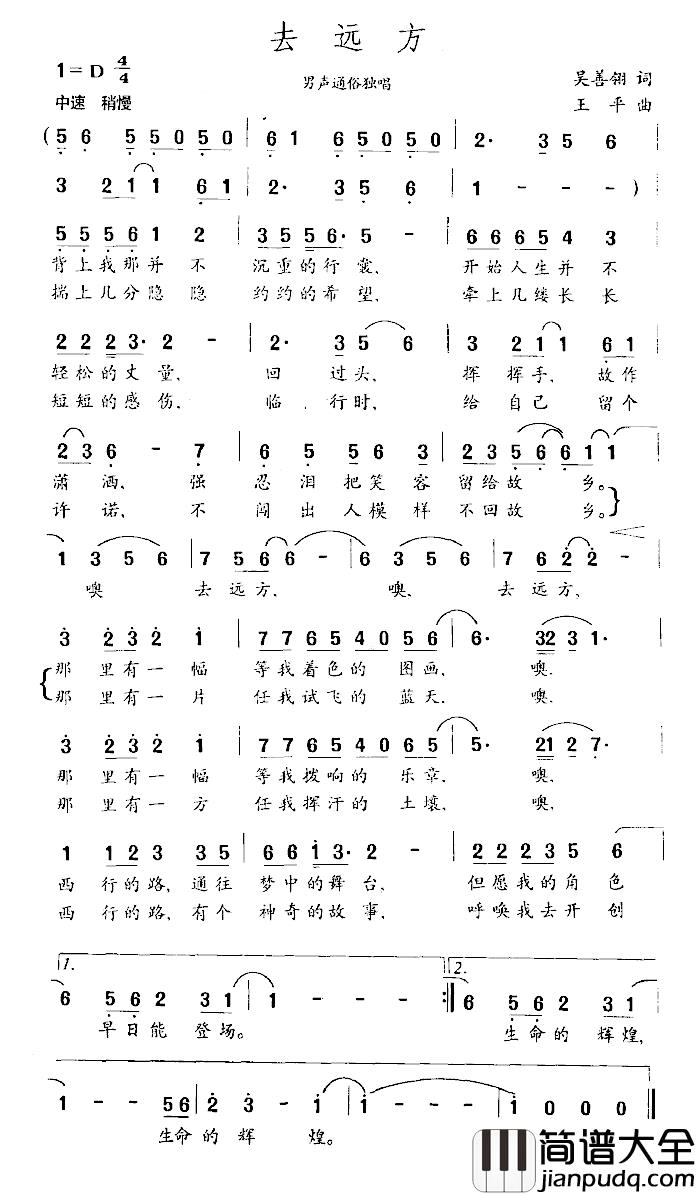 去远方
1=D 4/4
男声通俗独唱
吴善翎 词
中速 稍慢
王 平 曲
(5 6 5 5 0 5 0 | 6 1 6 5 0 5 0 | 2· 3 5 6
3 2 1 1 6 1 | 2· 3 5 6 | 1 - - - )
5 5 5 6 1 2 | 3 5 5 6· 5 - | 6 6 6 5 4 3
背上我那并不 沉重的行囊, 开始人生并不
揣上几分隐隐 约约的希望, 牵上几缕长长
2 2 2 3· 2 - | 2· 3 5 6 | 3 2 1 1 6 1
轻松的丈量, 回 过头, 挥挥手, 故作
短短的感伤, 临 行时, 给自己 留个
2 3 6 - 7 | 6 5 5 6 3 | 2 3 5 6 6 1 1
潇洒, 强 忍泪把笑容 留给故 乡。
许诺, 不 闯出人模样 不回故 乡。
1 3 5 6 | 7 5 6 6 - | 6 3 5 6 | 7 6 2 2 -
噢 去远方, 噢, 去远方,
3 2 3 2 1 | 7 7 6 5 4 0 5 6 | 6· 3 2 3 1·
那里有一幅 等我着色的 图画, 噢.
那里有一片 任我试飞的 蓝天. 噢.
3 2 3 2 1 | 7 7 6 5 4 0 6 5 | 5· 2 1 2 7·
那里有一幅 等我拨响的 乐章, 噢,
那里有一方 任我挥汗的 土壤, 噢,
1 1 2 3 3 5 | 6 6 1 3· 2 - | 2 2 2 3 5 6
西行的路, 通往 梦中的舞台, 但愿我的角色
西行的路, 有个 神奇的故事, 呼唤我去开创
1. 2.
6 5 6 2 3 1 | 1 - - - :| 6 5 6 2 3 1
早日能 登场。 生命的 辉煌,
1 - - 5 6 | 2 3 - 1 | 1 - - - | 1 0 0 0
生命的 辉 煌。
简谱大全
jianpudq.com